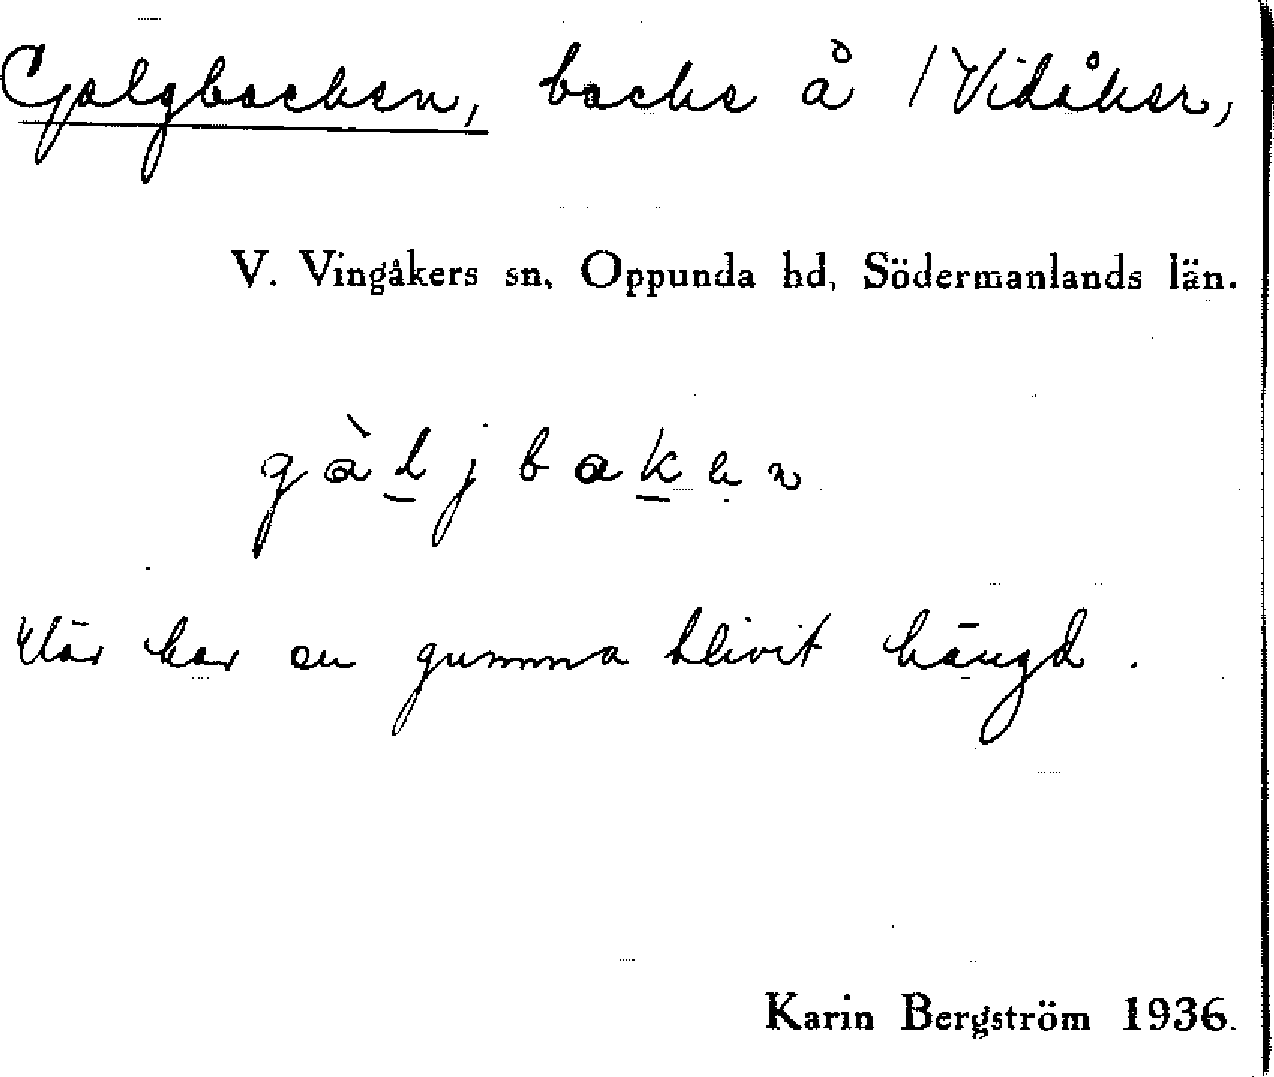 Galgbacken, backe å 1 Vidåker,
V. Vingåkers sn, Oppunda hd, Södermanlands län.
gàljbaken
Här har en gumma blivit hängd.
Karin Bergström 1936.